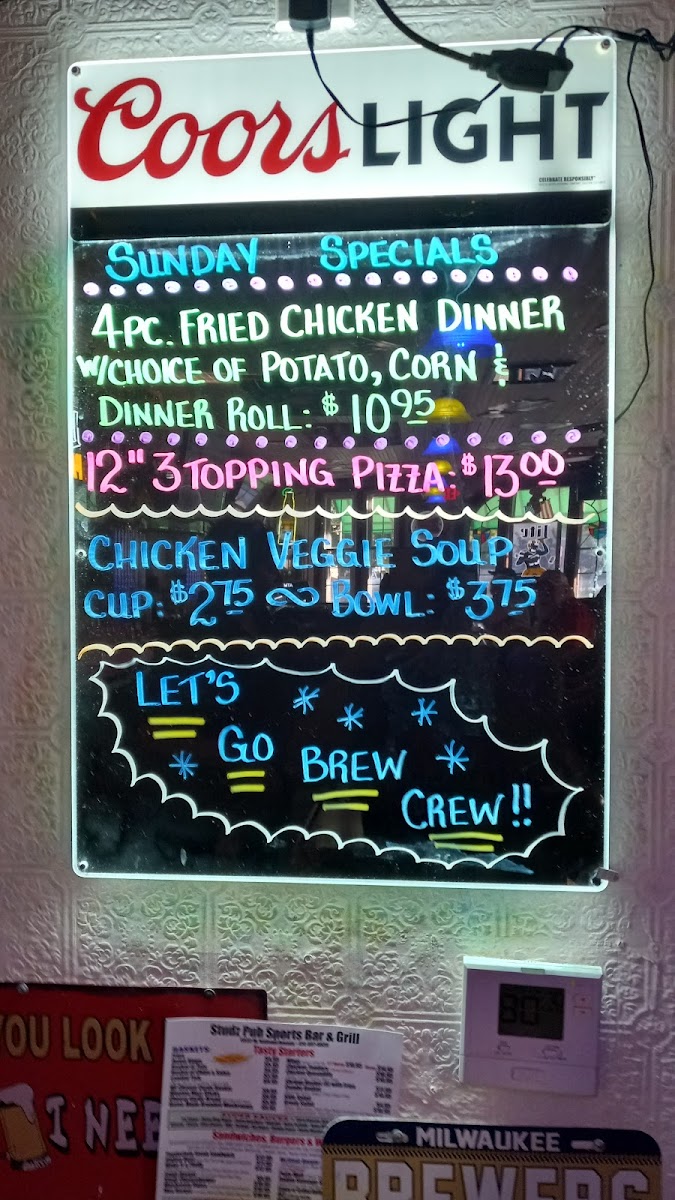 Coors LIGHT
CELEBRATE RESPONSIBLY
SUNDAY SPECIALS
4PC. FRIED CHICKEN DINNER
W/CHOICE OF POTATO, CORN &
DINNER ROLL: $10.95
12" 3 TOPPING PIZZA: $13.00
CHICKEN VEGGIE SOUP
CUP: $2.75 ∾ BOWL: $3.75
LET'S
GO
BREW
CREW!!
80
YOU LOOK
I NEE
Studz Pub Sports Bar & Grill
Tasty Starters
Sandwiches, Burgers &
MILWAUKEE
BREWERS